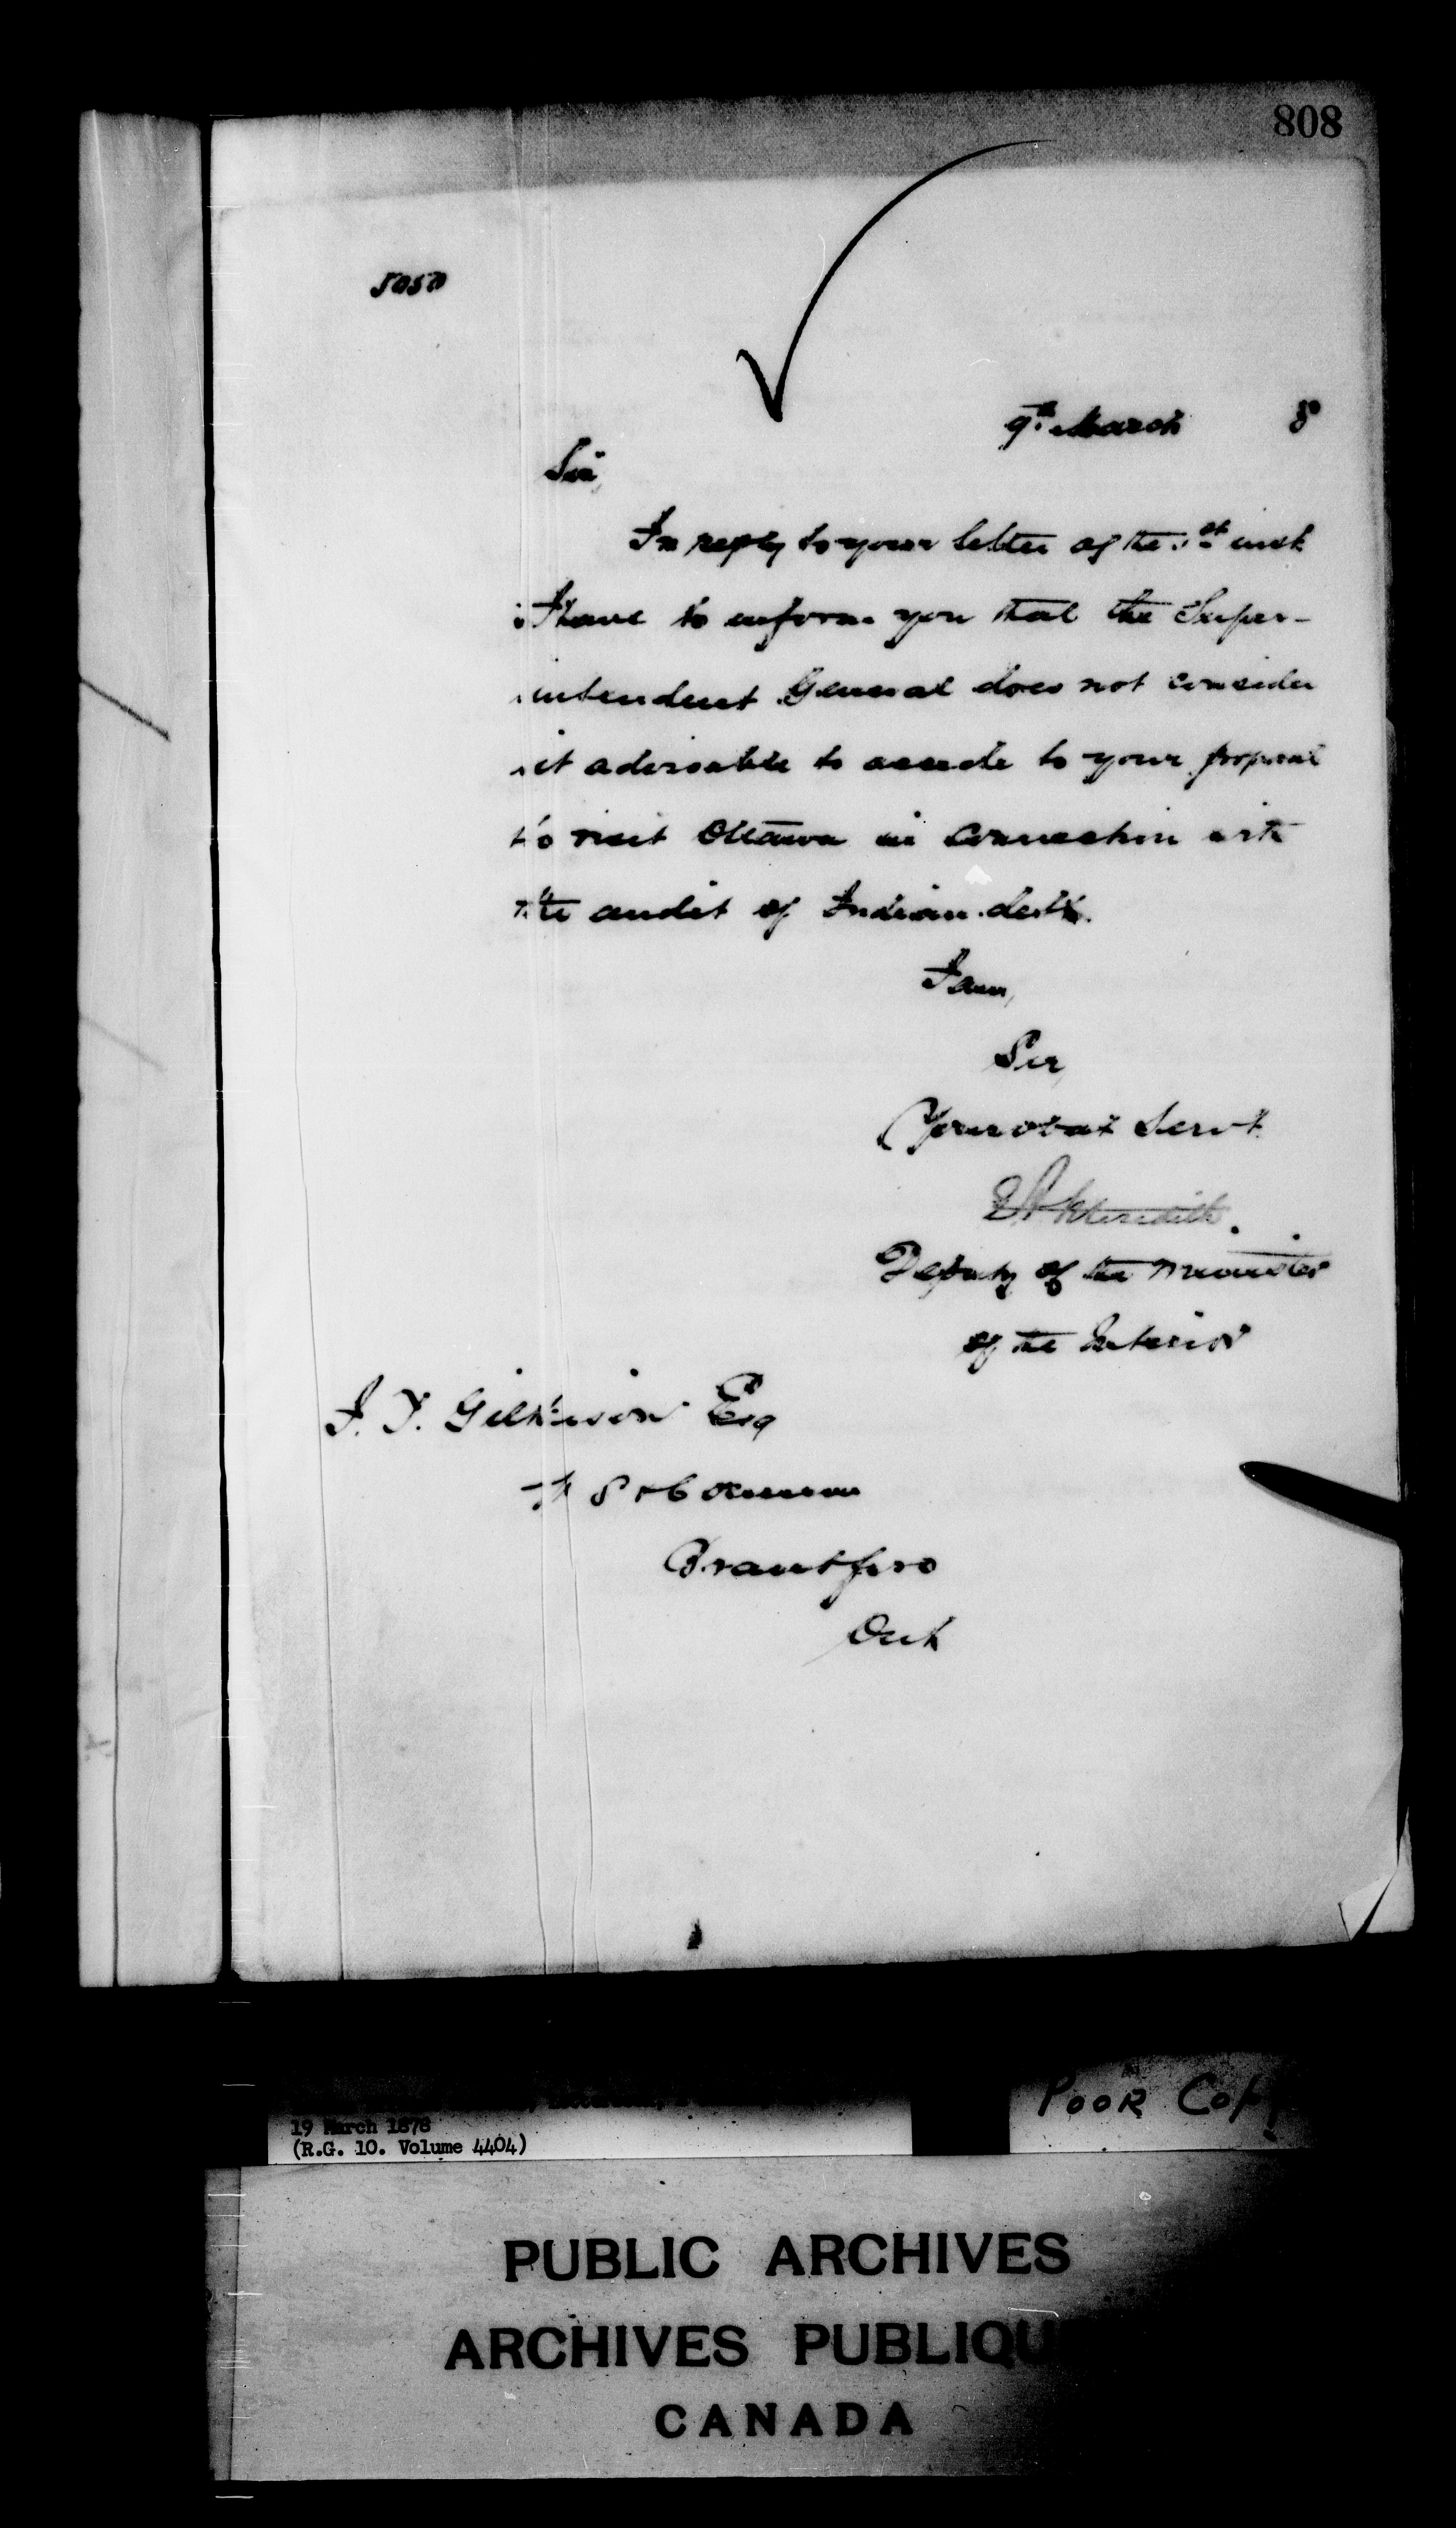 808
5050
9th March 8
Sir,
In reply to your letter of the 1st inst
I have to inform you that the Super-
intendent General does not consider
it advisable to accede to your proposal
to visit Ottawa in connection with
the audit of Indian debts.
I am,
Sir,
Your obdt Servt
E A Meredith
Deputy of the Minister
of the Interior
J. T. Gilkison Esq
Brantford
Ont
19 March 1878
(R.G. 10. Volume 4404)
POOR COPY
PUBLIC ARCHIVES
ARCHIVES PUBLIQU
CANADA